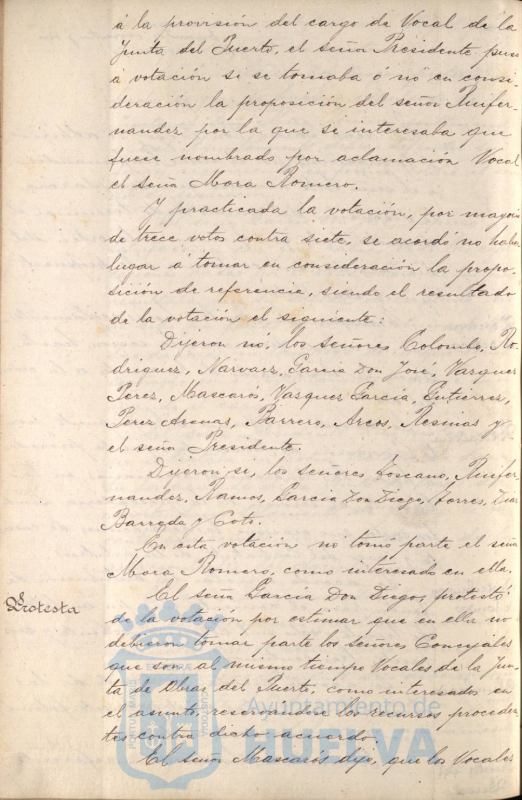 á la provisión del cargo de Vocal de la
Junta del Puerto, el señor Presidente puso
á votación si se tomaba ó nó en consi-
deración la proposición del señor Ruifer-
nandez por la que se interesaba que
fuese nombrado por aclamación Vocal
el señor Mora Romero.
Y practicada la votación, por mayoria
de trece votos contra siete, se acordó no haber
lugar á tomar en consideración la propo-
sición de referencia, siendo el resultado
de la votación el siguiente:
Dijeron nó, los señores Colombo, Ro-
driguez, Narvaez, Garcia Don José, Vazquez
Perez, Mascarós, Vazquez Garcia, Gutierrez,
Perez Arenas, Barrero, Arcos, Resinas y
el señor Presidente.
Dijeron si, los señores Toscano, Ruifer-
nandez, Ramos, Garcia Don Diego, Torres, Diaz
Barreda y Coto.
En esta votación no tomó parte el señor
Mora Romero, como interesado en ella.
Protesta
El señor Garcia Don Diego, protestó
de la votación por estimar que en ella no
debieron tomar parte los señores Concejales
que son al mismo tiempo Vocales de la Jun-
ta de Obras del Puerto, como interesados en
el asunto, reservandose los recursos proceden-
tes contra dicho acuerdo.
El señor Mascarós dijo, que los Vocales
Ayuntamiento de
HUELVA